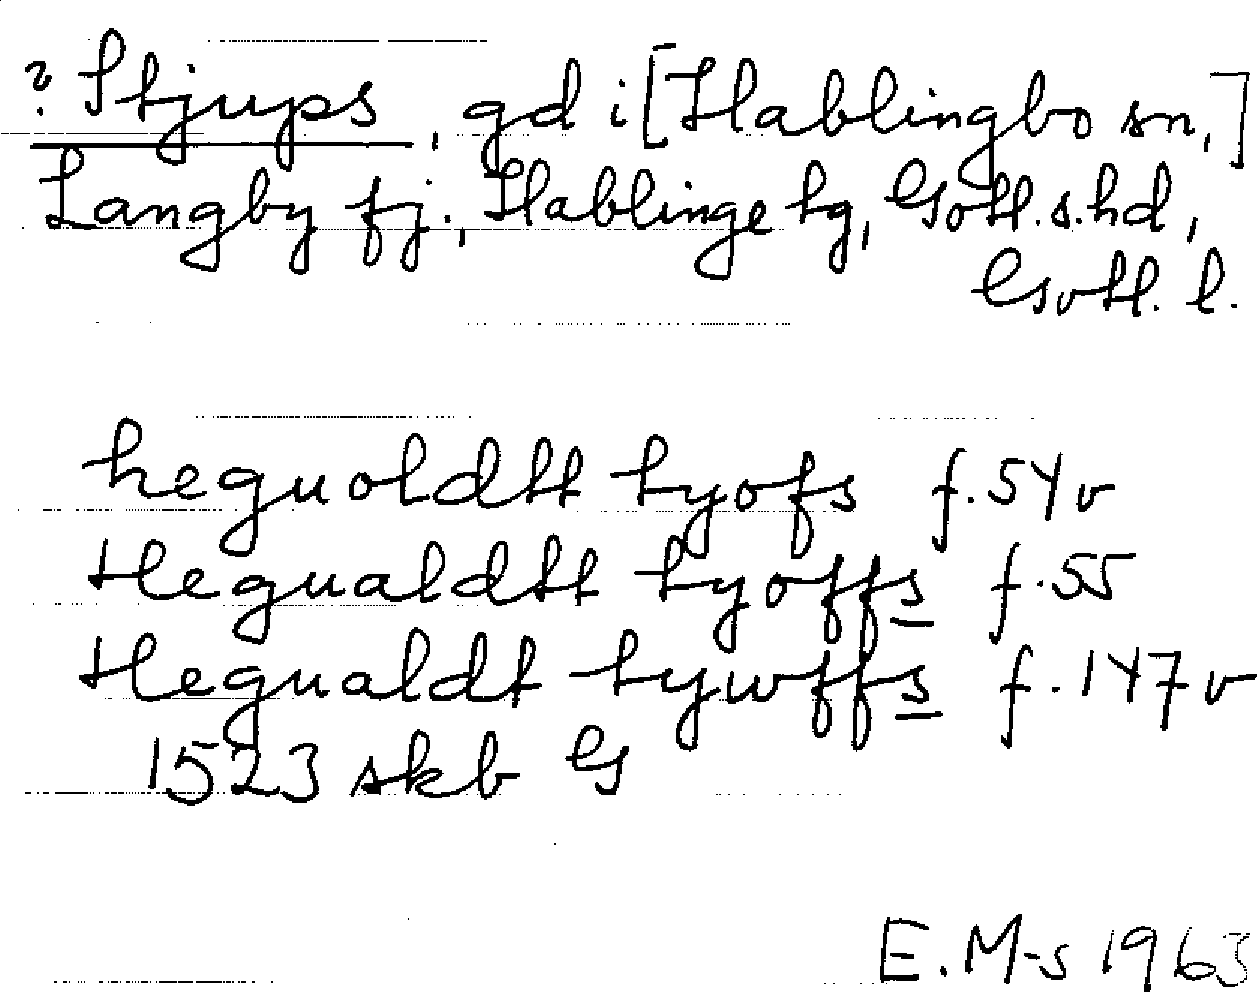 ? Stjups, gd i [Hablingbo sn,]
Langby fj., Hablinge tg, Gotl. s. hd,
Gotl. l.
heguoldtt tyofs f. 54v
Hegualdtt tyoffs f. 55
Hegualdt tywffs f. 147v
1523 skb G
E. M-s 1963